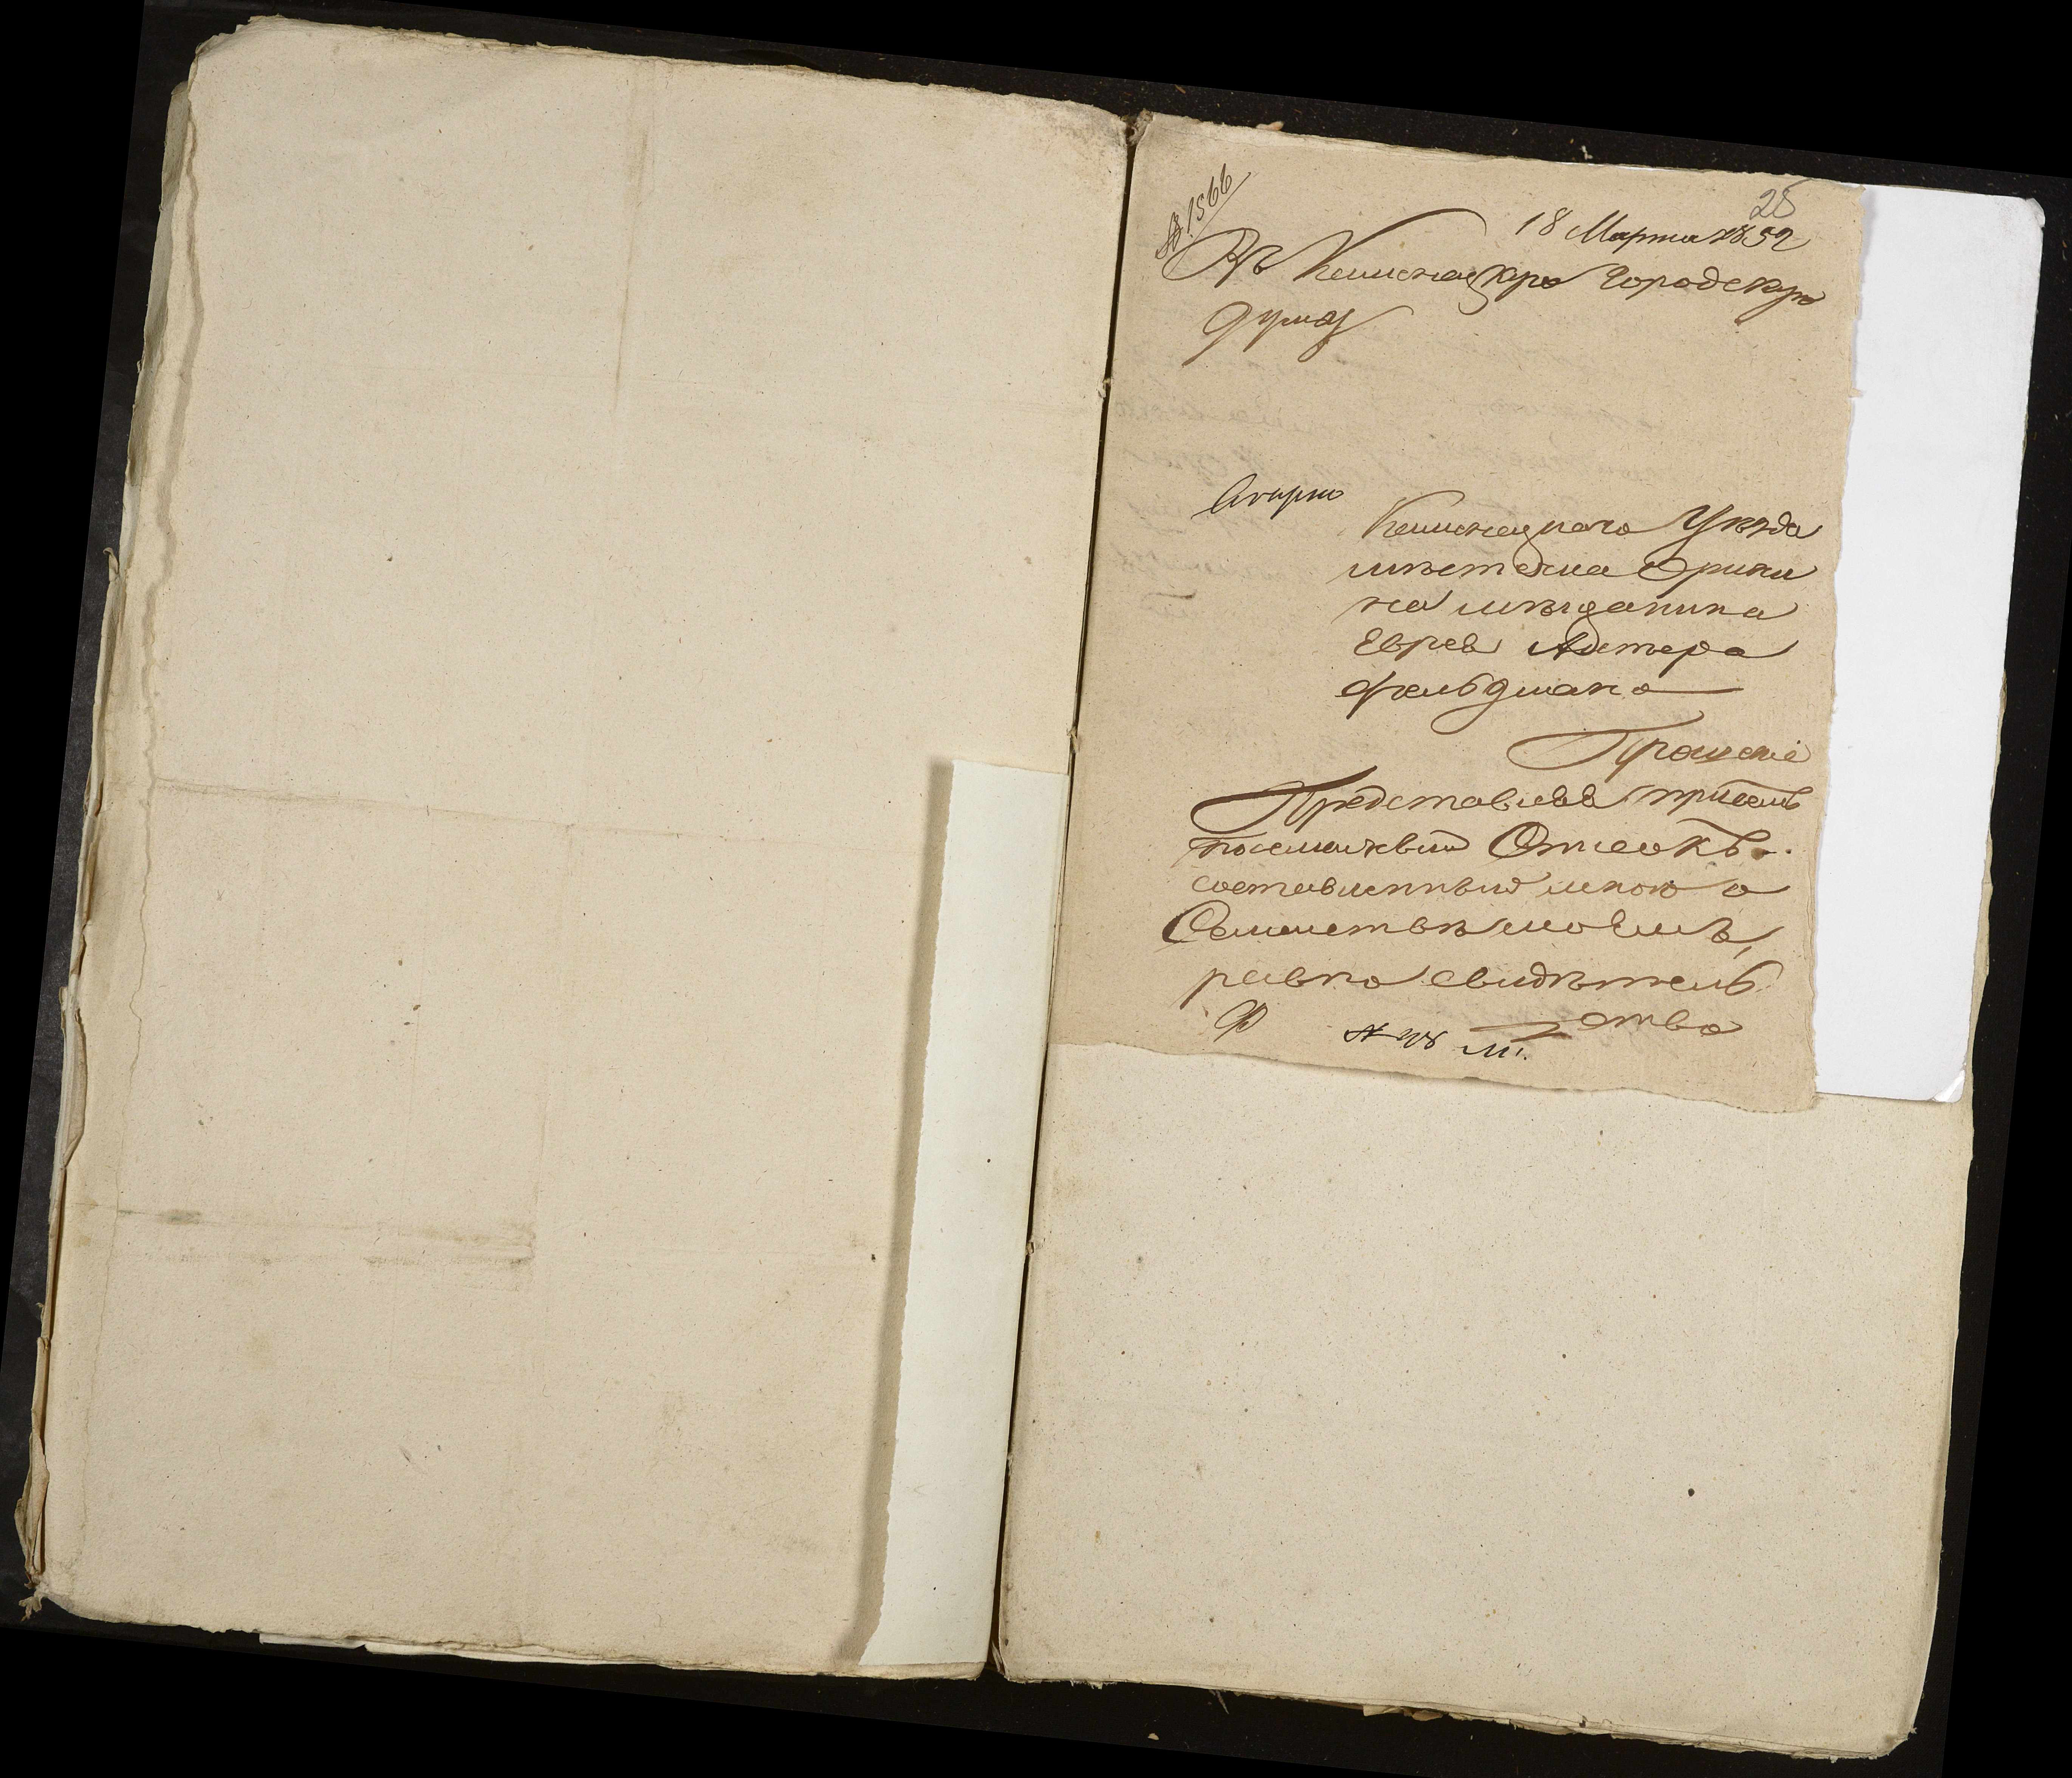 № 1566
25
18 Марта 1852
Въ Кишиневскую Городскую
думу
Кишиневскаго Уѣзда
мѣстечка Оргѣева
мѣщанина
Еврея Альтера
Фельдмана
Прошеніе
Представляя при семъ
посемейный Списокъ
составленный мною о
Семействѣ моемъ,
равно свидѣтель
ство